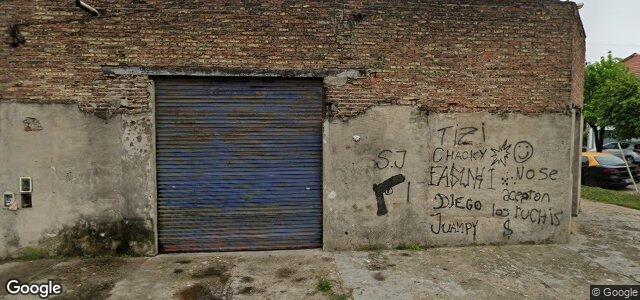 TIZI
S.J
CHACKY
No se
DIEGO
aceptan
los RUCHIS
JUAMPY
$
Google
© Google